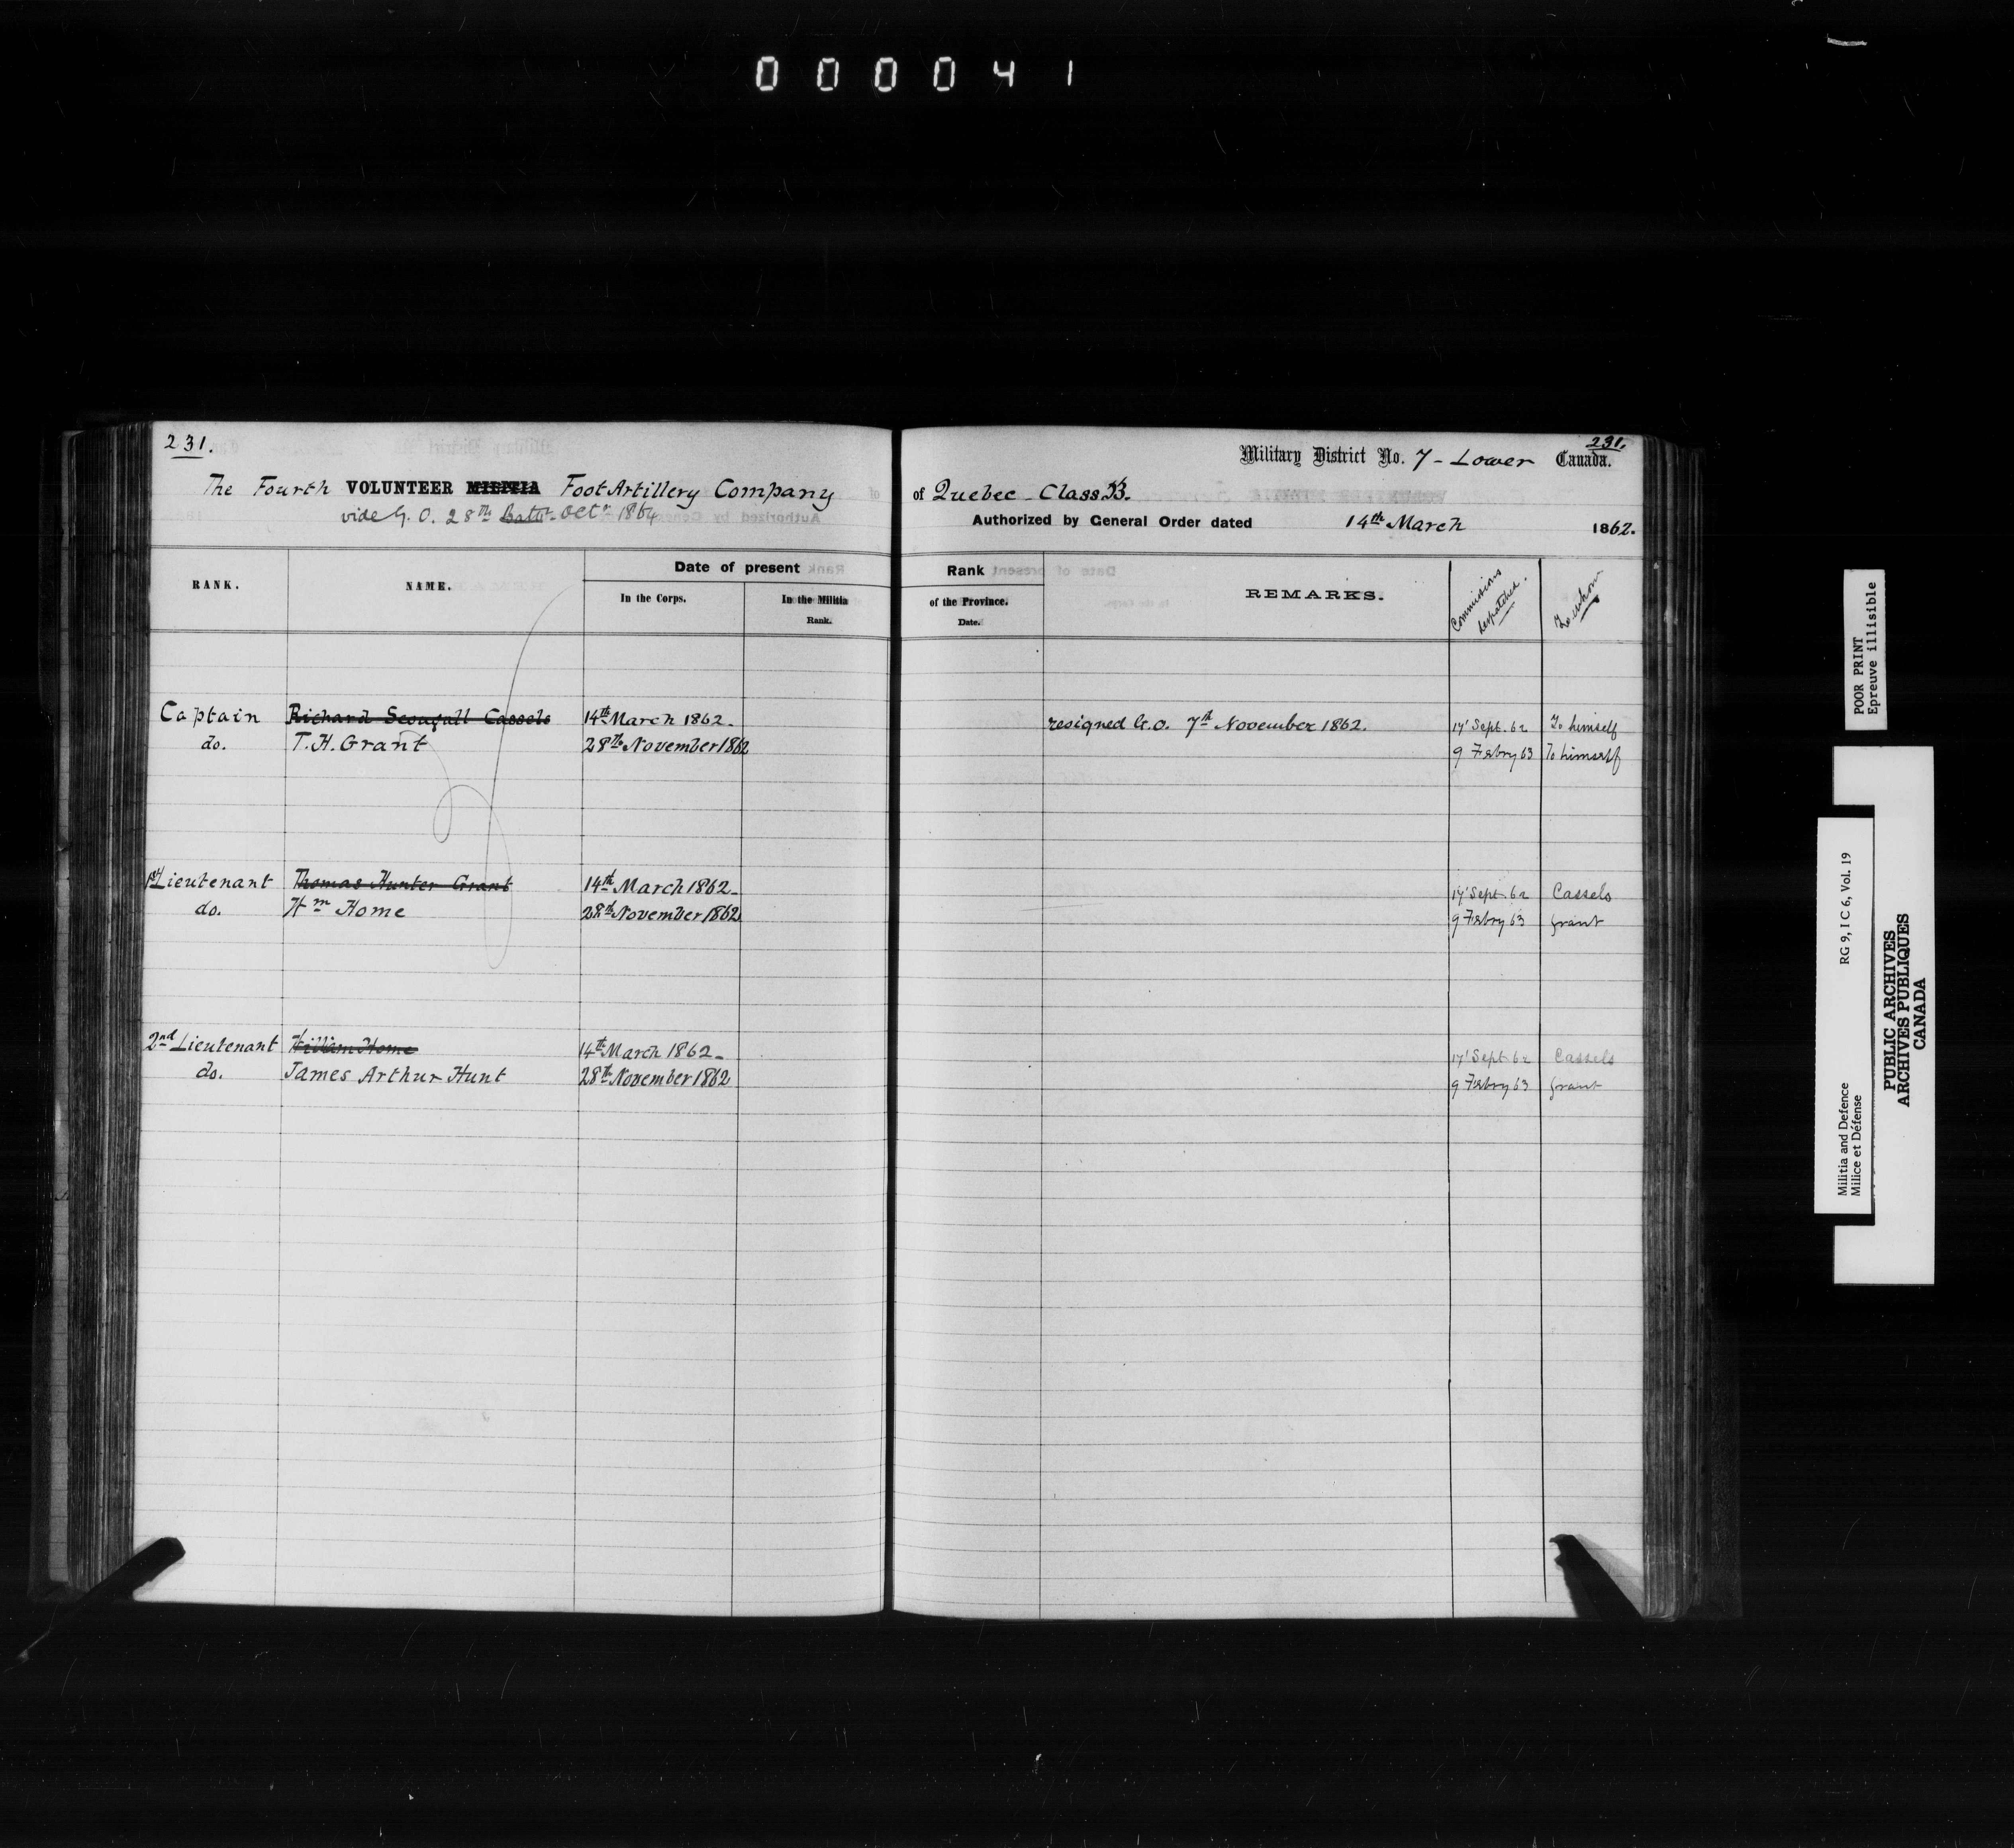 000041
231.
The Fourth VOLUNTEER MILITIA Foot Artillery Company
vide G. O. 28th Octr 1864
RANK.
NAME.
Date of present
In the Corps.
In the Militia
Rank.
Captain Richard Scougall Cassels 14th March 1862.
do. T. H. Grant 28th November 1862
1st Lieutenant Thomas Hunter Grant 14th March 1862.
do. Wm Home 28th November 1862
2nd Lieutenant William Home 14th March 1862.
do. James Arthur Hunt 28th November 1862
231.
Military District No. 7 - Lower Canada.
of Quebec - Class B.
Authorized by General Order dated 14th March 1862.
Rank
of the Province.
Date.
REMARKS.
Commissions
despatched.
To whom
resigned G.O. 7th November 1862. 17' Sept. 62 To himself
9 Febry 63 To himself
17' Sept. 62 Cassels
9 Febry 63 Grant
17' Sept. 62 Cassels
9 Febry 63 Grant
POOR PRINT
Epreuve illisible
RG 9, I C 6, Vol. 19
Militia and Defence
Milice et Défense
PUBLIC ARCHIVES
ARCHIVES PUBLIQUES
CANADA